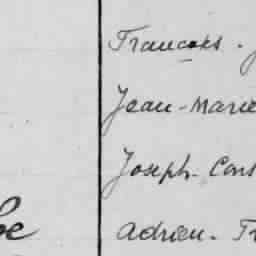 Francois - J
Jean-Marie
Joseph- Cons
Adrien- Fr